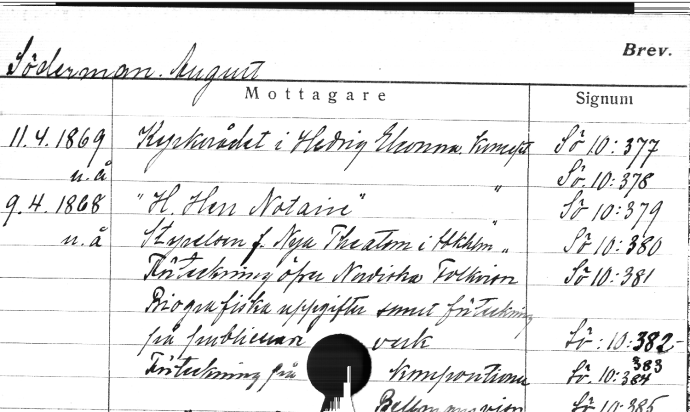 Brev.
Söderman. August
Mottagare
Signum
11.4.1869 Kyrkorådet i Hedvig Eleonora. Koncept Sö 10:377
u.å " Sö. 10:378
9.4.1868 "H. Herr Notarie" " Sö 10:379
u.å Styrelsen f. Nya Theatern i Sthlm " Sö 10:380
Förteckning över Nordiska Folkvisor Sö 10:381
Biografiska uppgifter samt förteckning
på publicerade verk Sö: 10:382-
383
Förteckning på kompositioner Sö. 10:384
Sö 10:385